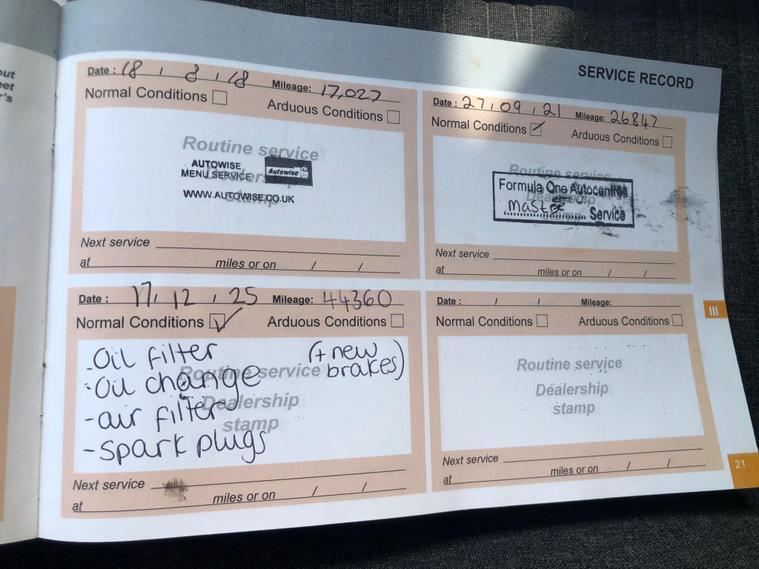 out
eet
r's
SERVICE RECORD
Date : 18 / 8 / 18 Mileage: 17,027
Normal Conditions Arduous Conditions
Routine service
Dealership
stamp
AUTOWISE
MENU SERVICE Autowise
WWW.AUTOWISE.CO.UK
Next service
at miles or on / /
Date : 27 / 09 / 21 Mileage: 26847
Normal Conditions Arduous Conditions
Routine service
Dealership
stamp
Formula One Autocentres
Master Service
Next service
at miles or on / /
Date : 17 / 12 / 25 Mileage: 44360
Normal Conditions Arduous Conditions
- Oil filter (+ new
- Oil change brakes)
- air filter
- spark plugs
Routine service
Dealership
stamp
Next service
at miles or on / /
Date : / / Mileage:
Normal Conditions Arduous Conditions
Routine service
Dealership
stamp
Next service
at miles or on / /
III
21